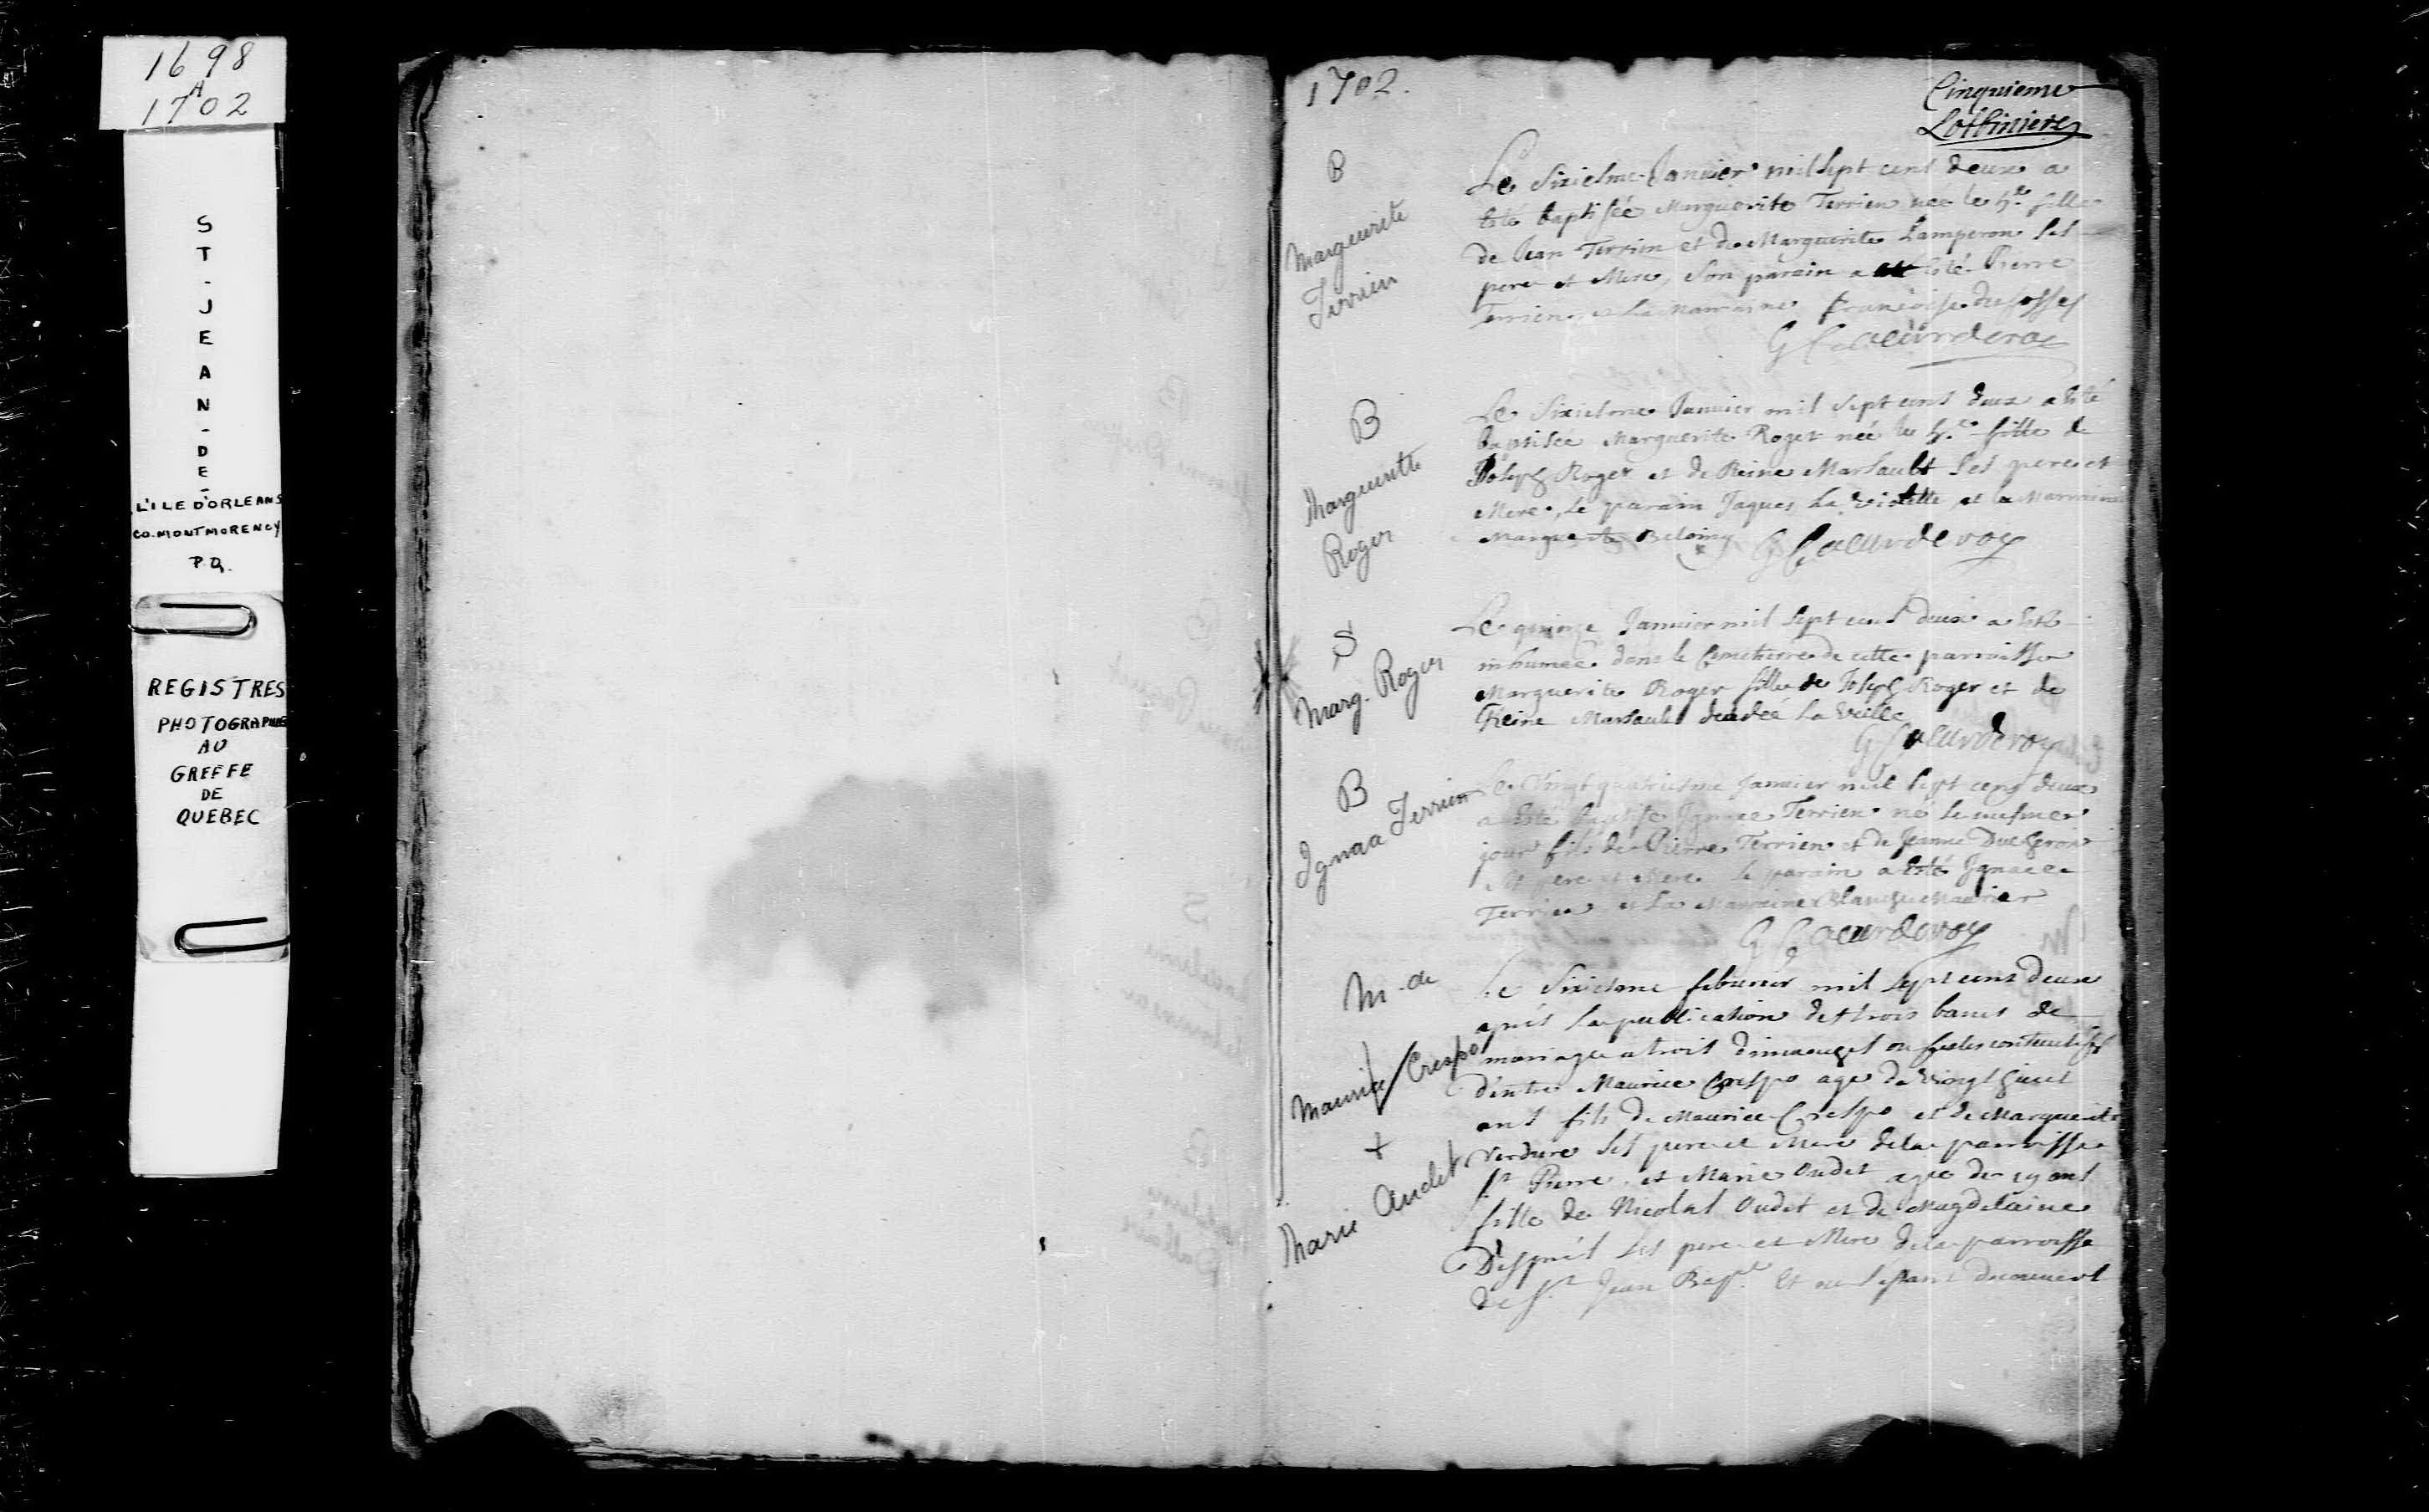 1698
A
1702
ST-JEAN-DE-
L'ILE D'ORLEANS
CO. MONTMORENCY
P.Q.
REGISTRES
PHOTOGRAPHIES
AU
GREFFE
DE
QUEBEC
1702.
Cinquieme
Lotbiniere
B
Marguerite
Terrien
Le Sixiesme Janvier mil sept cens deux a
esté baptisée Marguerite Terrien née le 4.e fille
de Jean Terrien et de Marguerite Lamperon ses
pere et Mere, Son parain a esté Pierre
Terrien et La Marraine francoise du fosses
G Coeurderoy
B
Marguerite
Roger
Le Sixiesme Januier mil sept cens deux a esté
baptisée Marguerite Roger née le 4.e fille de
Joseph Roger et de Reine Marsault ses pere et
Mere, Le parain Jaques La Violette et la Marraine
Marguerite
G Coeurderoy
S
Marg. Roger
Le quinze Januier mil sept cens deux a esté
inhumée dans le Cimetierre de cette parroisse
Marguerite Roger fille de Joseph Roger et de
Reine Marsault decedée La Veille
G Coeurderoy
B
Ignace Terrien
Le Vingt quatriesme Januier mil sept cens deux
a esté baptisé Ignace Terrien né le mesme
jour fils de Pierre Terrien et de Jeanne Ducheron
pere et Mere le parain a esté Ignace
Terrien et La Marraine
G Coeurderoy
M. de
Maurice Crespo
+
Marie Audet
Le Sixiesme feburier mil sept cens deux
aprés La publication des trois bancs de
mariage a trois dimanges ou festes
d'entre Maurice Crespo age de Vingt huict
ans fils de Maurice Crespo et de Marguerite
Verdure ses pere et Mere de la parroisse
St Pierre et Marie Oudet agée de 19 ans
fille de Nicolas Oudet et de Magdelaine
Després ses pere et Mere de la parroisse
de St Jean Bapt. Et ne s'estant decouuert